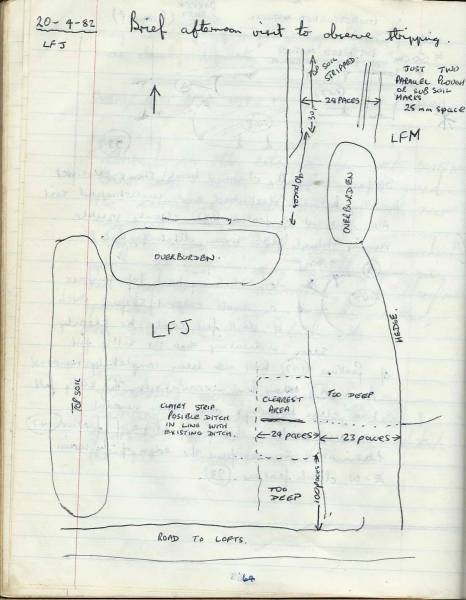 20-4-82 Brief afternoon visit to observe stripping.
LFJ
TOP SOIL
STRIPPED
JUST TWO
PARALLEL PLOUGH
OR SUB SOIL
MARKS
25 mm space
28 PACES
30
LFM
40 paces
OVERBURDEN
OVERBURDEN.
LFJ
HEDGE.
TOP SOIL
TOO DEEP
CLEAREST
AREA
CLAYEY STRIP
POSIBLE DITCH
IN LINE WITH
EXISTING DITCH.
29 paces
23 paces
100 paces
TOO
DEEP
ROAD TO LOFTS.
64